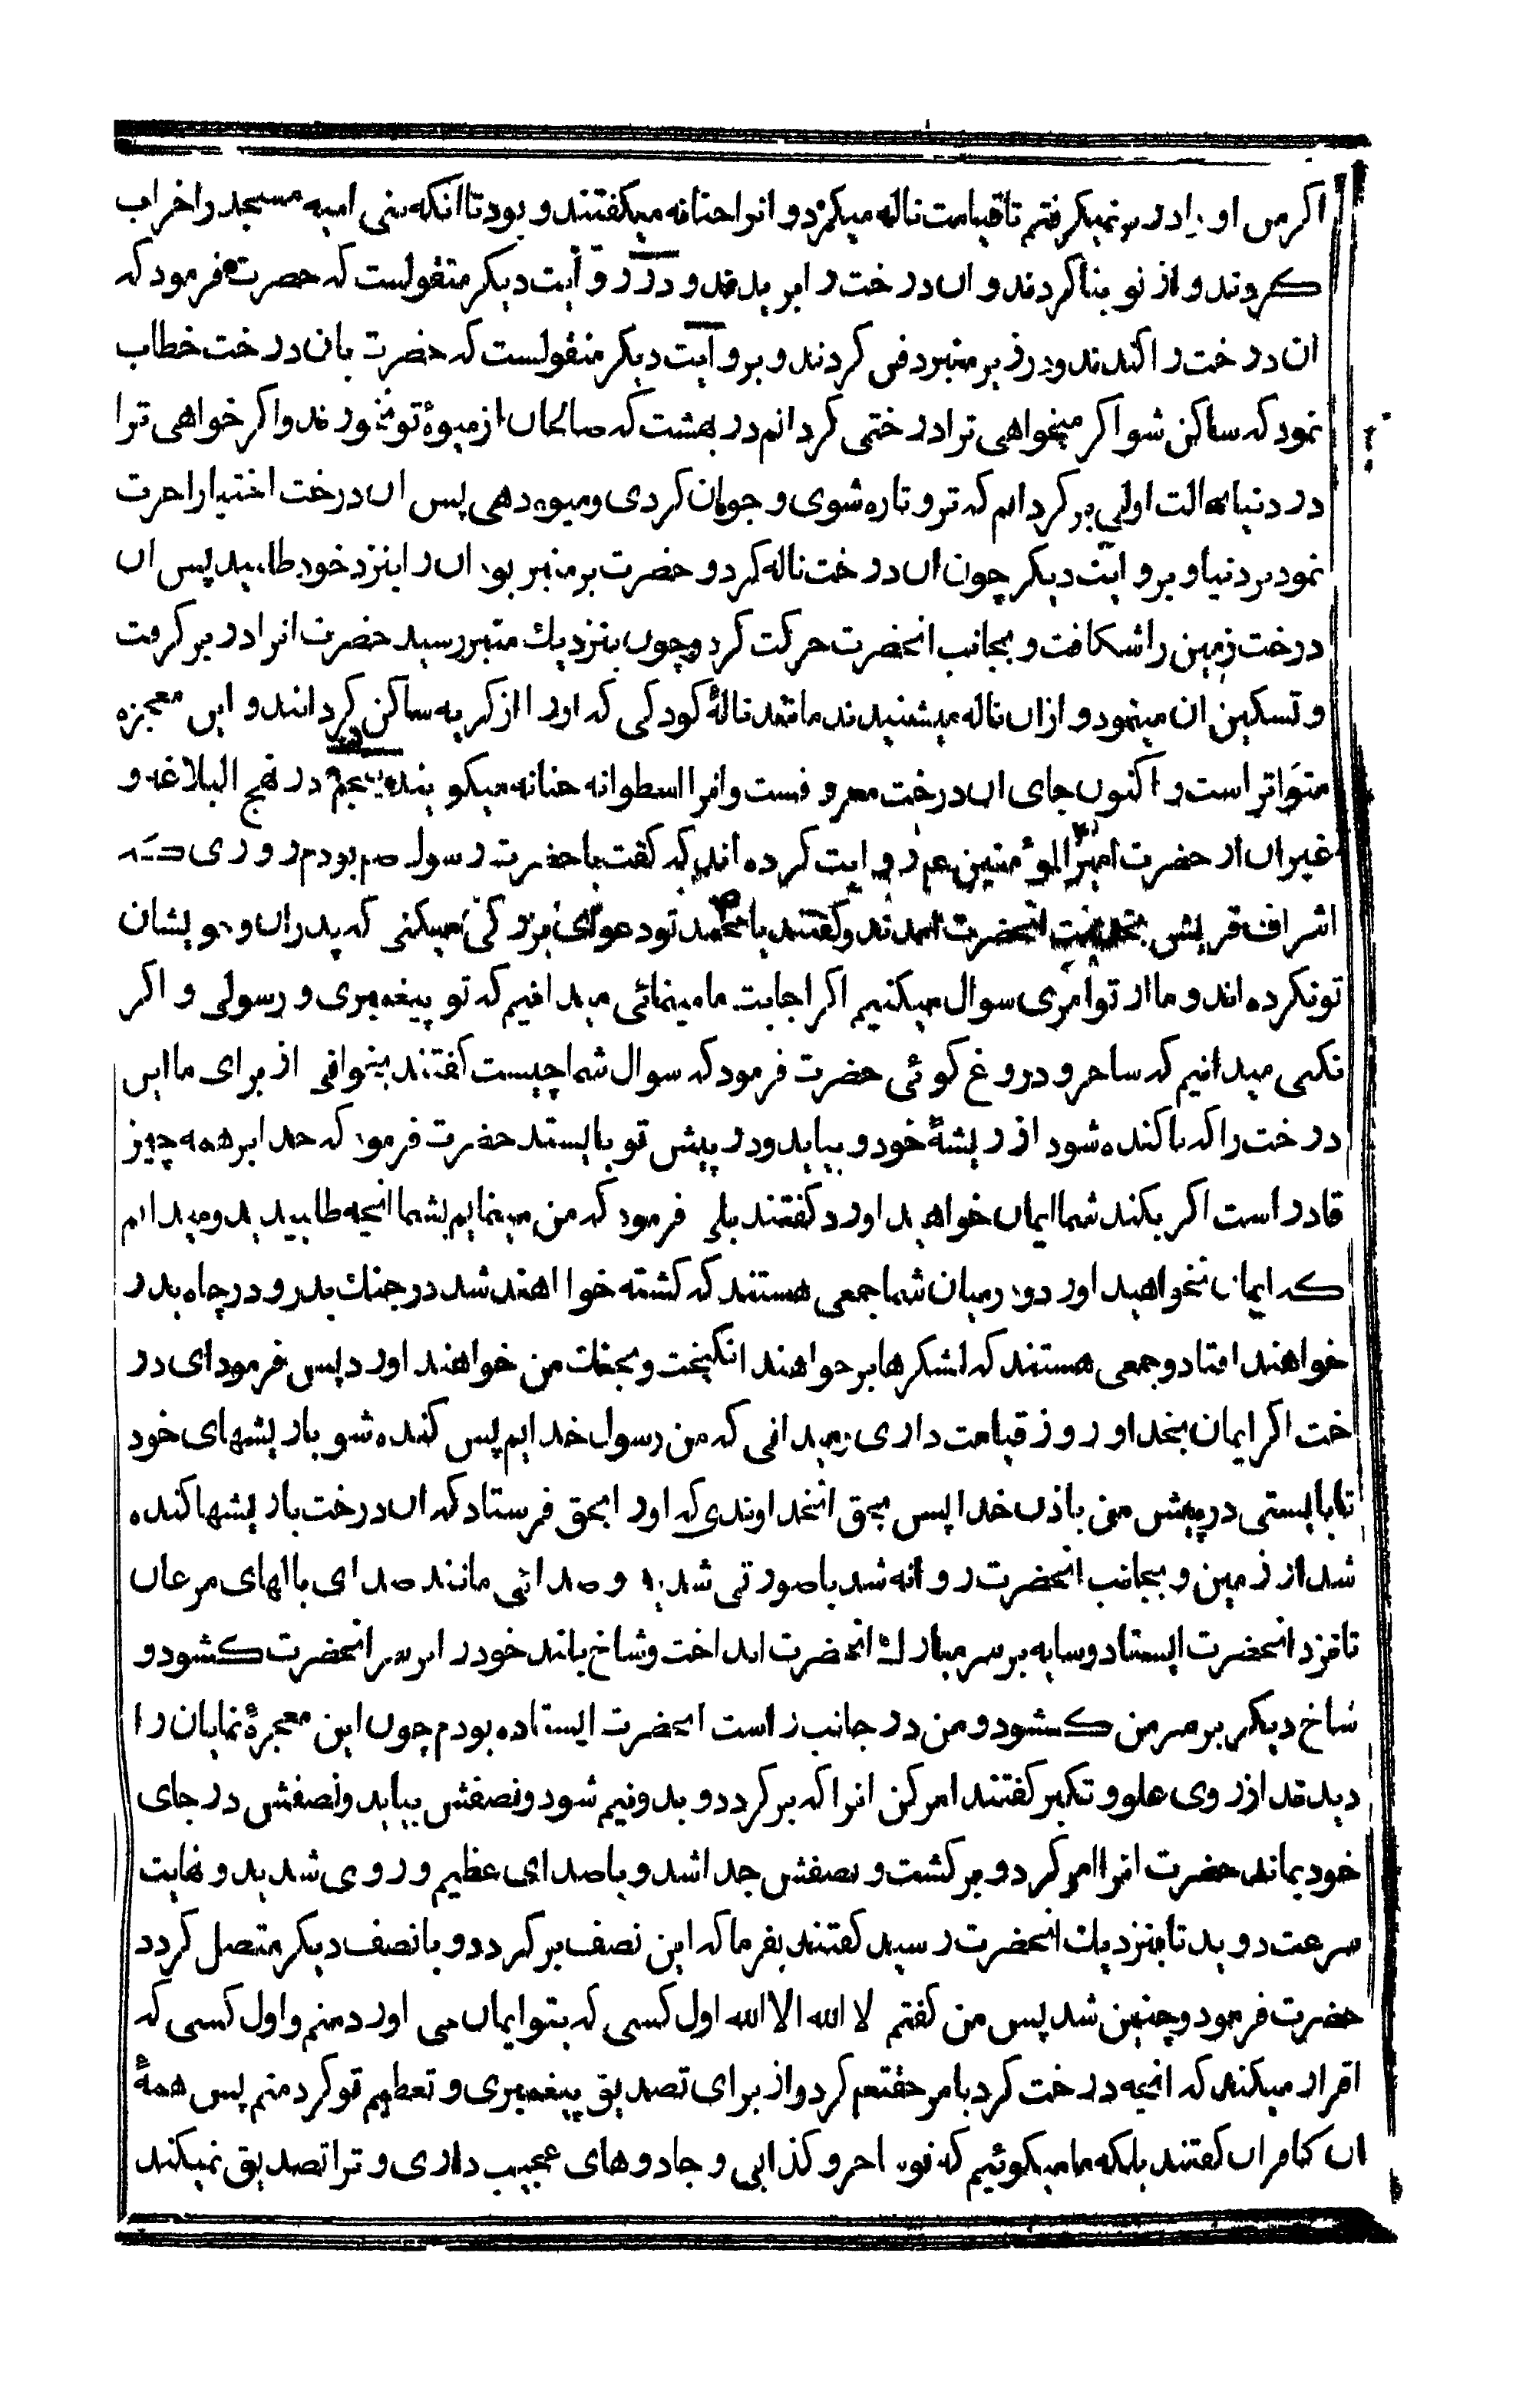 اکر من او را در بر نمیکرفتم تا قیامت ناله میکرد و انرا حنانه میکفتند و بود تا انکه بنی امیه مسجد را خراب
کردند و از نو بنا کردند و ان درخت را بریدند و در روایت دیکر منقولست که حضرت فرمود که
ان درخت را کندند و در زیر منبر دفن کردند و بروایت دیکر منقولست که حضرت بان درخت خطاب
نمود که ساکن شو اکر میخواهی ترا درختی کردانم در بهشت که صالحان از میوهٔ تو بخورند و اکر خواهی ترا
در دنیا بحالت اولی بر کردانم که تر و تازه شوی و جوان کردی و میوه دهی پس ان درخت اختیار اخرت
نمود بر دنیا و بروایت دیکر چون ان درخت ناله کرد و حضرت بر منبر بود ان را بنزد خود طلبید پس ان
درخت زمین را شکافت و بجانب انحضرت حرکت کرد و چون بنزدیك منبر رسید حضرت انرا در بر کرفت
و تسکین ان مینمود و ازان ناله میشنیدند مانند نالهٔ کودکی که او را از کریه ساکن کردانند و این معجزه
متواتر است و اکنون جای ان درخت معروفست و انرا اسطوانه حنانه میکویند پنجم در نهج البلاغه و
غیر ان از حضرت امیر المؤمنین عم روایت کرده اند که کفت با حضرت رسول صم بودم روزی که
اشراف قریش بخدمت انحضرت امدند و کفتند یا محمد تو دعوای بزرکی میکنی که پدران و خویشان
تو نکرده اند و ما از تو امری سوال میکنیم اکر اجابت ما مینمائی میدانیم که تو پیغمبری و رسولی و اکر
نکنی میدانیم که ساحر و دروغ کوئی حضرت فرمود که سوال شما چیست کفتند بخوانی از برای ما این
درخت را که تا کنده شود از ریشهٔ خود و بیاید و در پیش تو بایستد حضرت فرمود که خدا بر همه چیز
قادر است اکر بکند شما ایمان خواهید اورد کفتند بلی فرمود که من مینمایم بشما انچه طلبیدید و میدانم
که ایمان نخواهید اورد و در میان شما جمعی هستند که کشته خوا اهند شد در جنك بدر و در چاه بدر
خواهند افتاد و جمعی هستند که لشکرها بر خواهند انکیخت و بجنك من خواهند اورد پس فرمود ای در
خت اکر ایمان بخدا و روز قیامت داری و میدانی که من رسول خدایم پس کنده شو با ریشهای خود
تا بایستی در پیش من باذن خدا پس بحق انخداوندی که او را بحق فرستاد که ان درخت با ریشها کنده
شد از زمین و بجانب انحضرت روانه شد با صورتی شدید و صدائی مانند صدای بالهای مرغان
تا نزد انحضرت ایستاد و سایه بر سر مبارك انحضرت انداخت و شاخ بلند خود را بر سر انحضرت کشود و
شاخ دیکر بر سر من کشود و من در جانب راست انحضرت ایستاده بودم چون این معجزهٔ نمایان را
دیدند از روی علو و تکبر کفتند امر کن انرا که بر کردد و بدو نیم شود و نصفش بیاید و نصفش در جای
خود بماند حضرت انرا امر کرد و بر کشت و نصفش جدا شد و با صدای عظیم و روی شدید و نهایت
سرعت دوید تا بنزدیك انحضرت رسید کفتند بفرما که این نصف بر کردد و با نصف دیکر متصل کردد
حضرت فرمود و چنین شد پس من کفتم لا اله الا الله اول کسی که بتو ایمان می اورد منم و اول کسی که
اقرار میکند که انچه درخت کرد بامر حقتعم کرد و از برای تصدیق پیغمبری و تعظیم تو کرد منم پس همهٔ
ان کافران کفتند بلکه ما میکوئیم که تو ساحر و کذابی و جادوهای عجیب داری و ترا تصدیق نمیکند